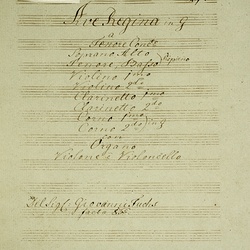 Ave Regina in G
a
Tenore Conc:
Soprano Alto
Tenore, Basso Ripieno
Violino 1mo
Violino 2do
Clarinetto 1mo
Clarinetto 2do
Corno 1mo
Corno 2do in G
con
Organo
Violone e Violoncello
Del Sigl. Giovanni Fuchs